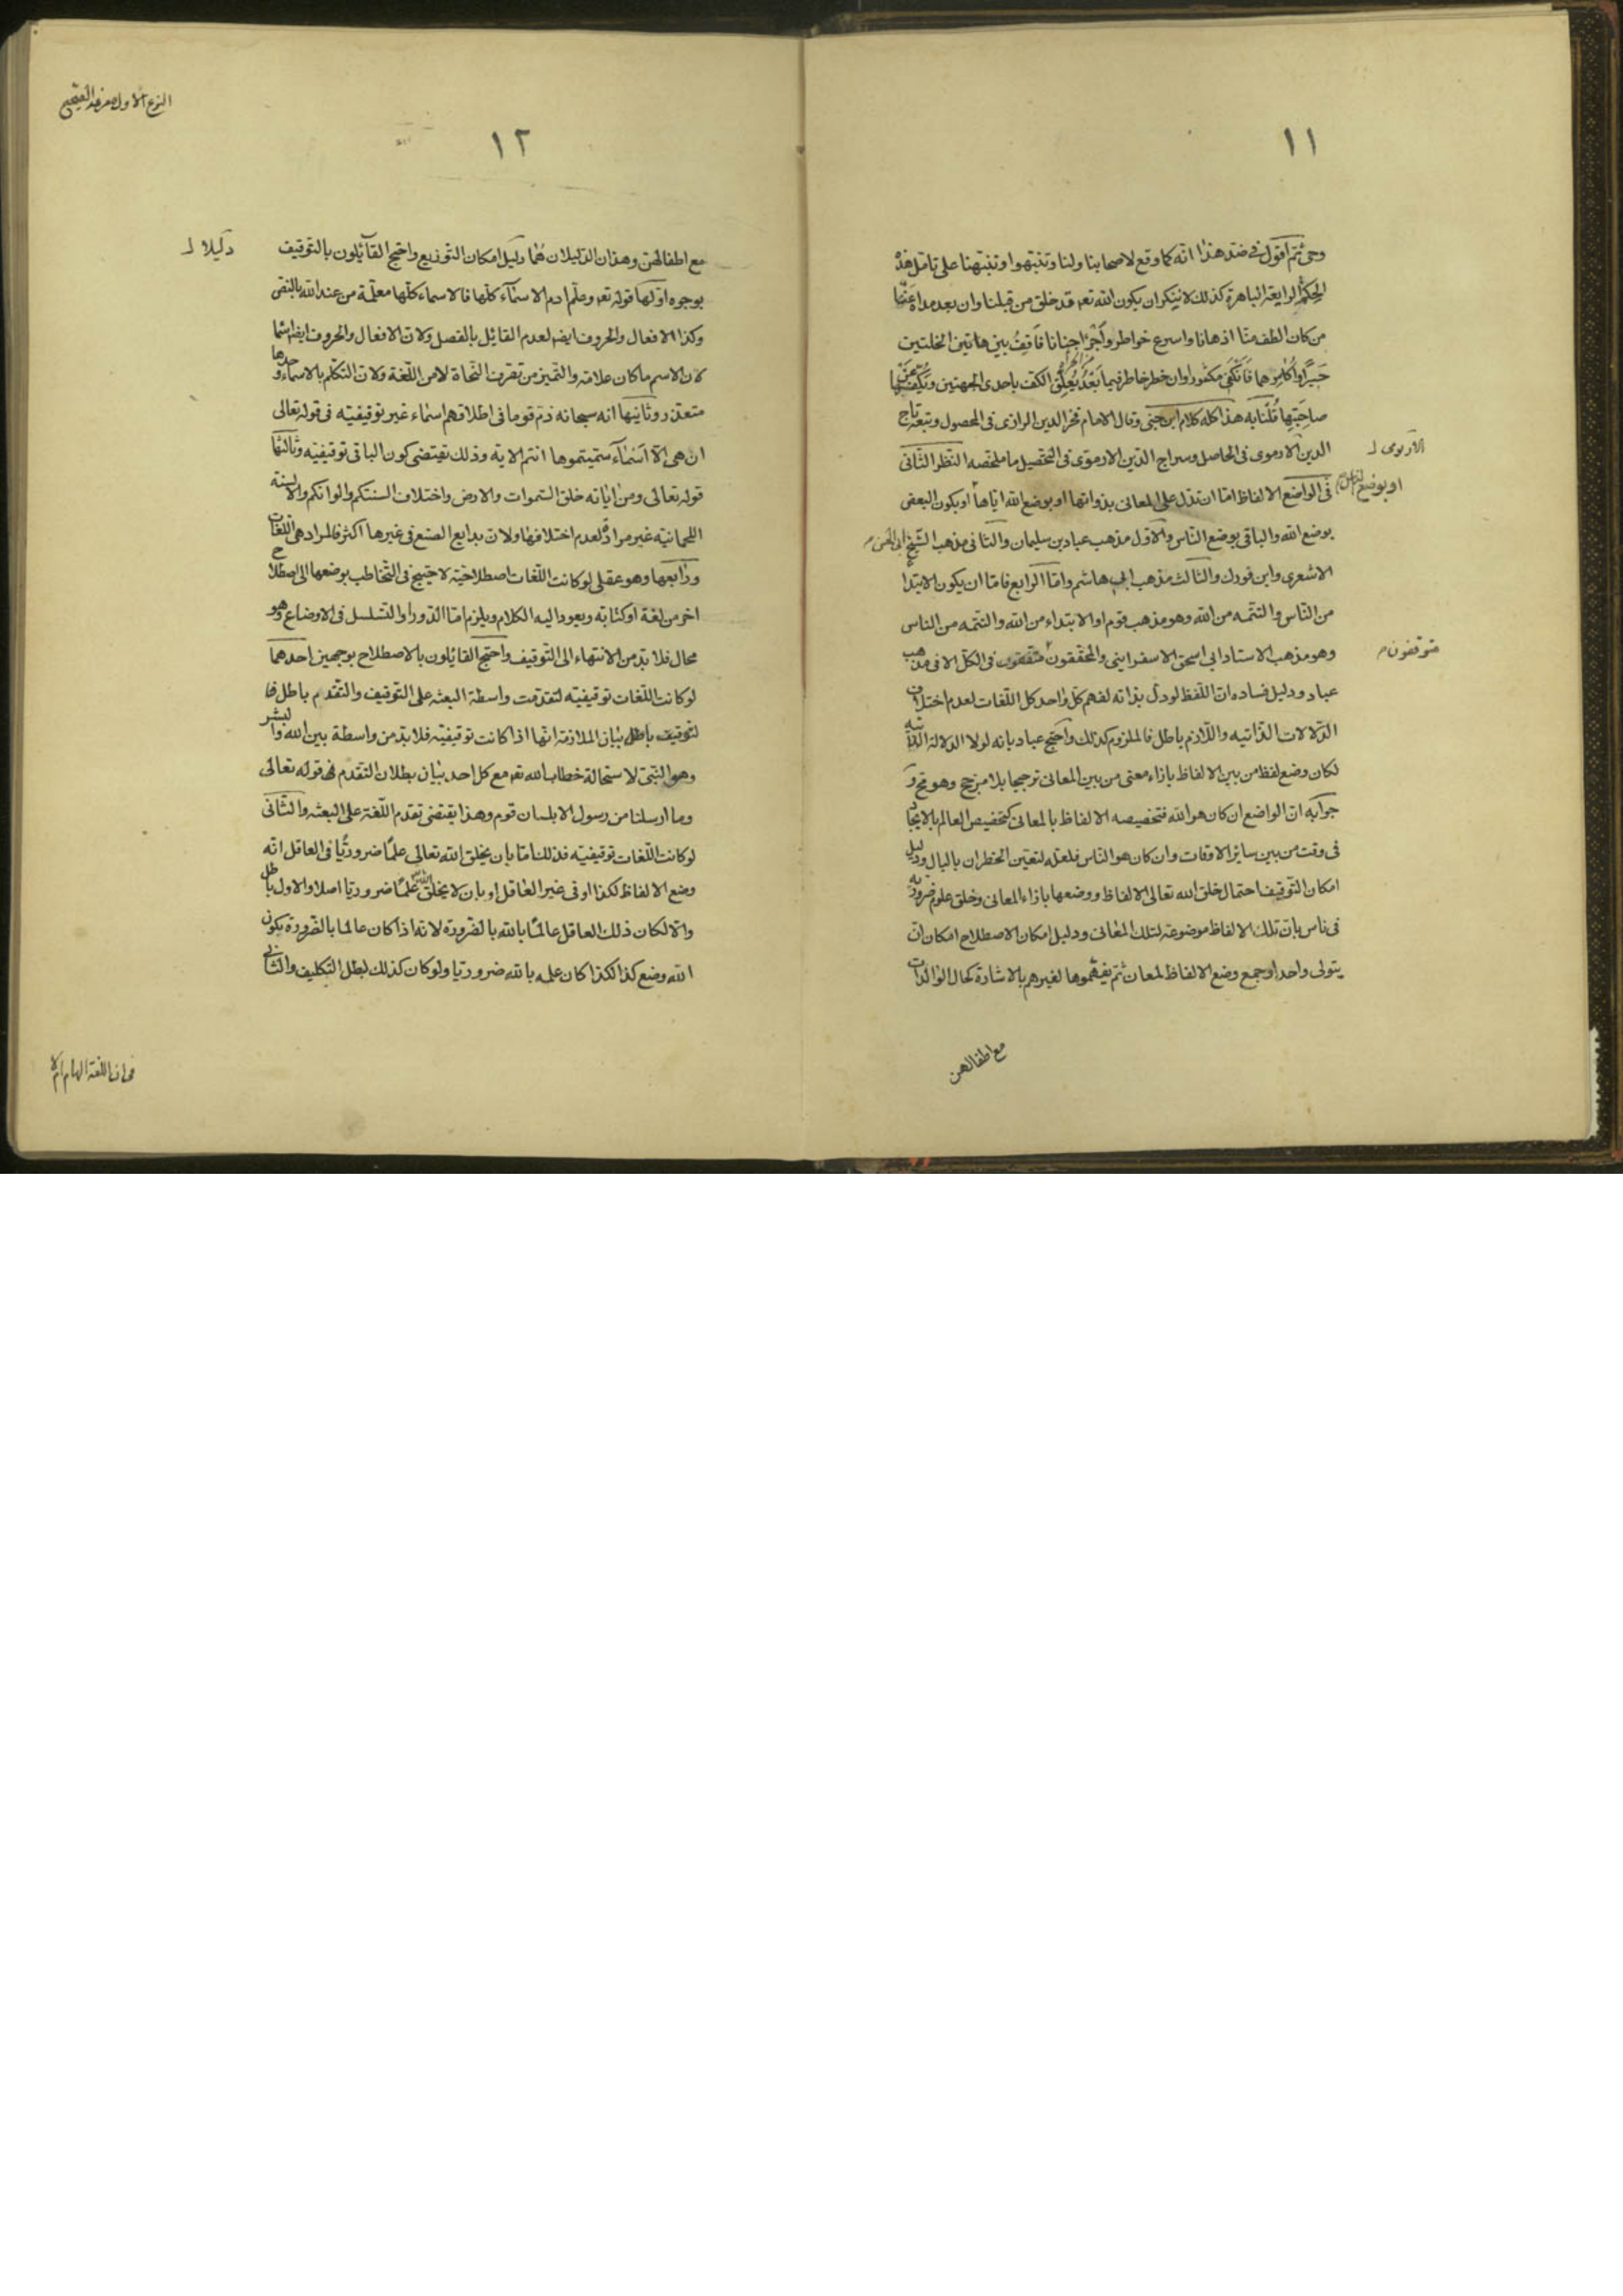 ١١
وحى ثم اقول فى ضد هذا انه كما وقع لاصحابنا ولنا وتنبهوا وتنبهنا على تامل هذه
الحكمة الرايعة الباهرة كذلك لا ننكر ان يكون الله تعـ قد خلق من قبلنا وان بعد مداه عنا
من كان الطف منا اذهانا واسرع خواطر واجرا جنانا فاقف بين هاتين الخلتين
حسيرا واكاثرهما فانكفى مكثورا وان خطر خاطر فيما بعد يعلق الكف باحدى الجهتين ويكفها عن
صاحبتها قلنا به هذا كله كلام ابن جنى وقال الامام فخر الدين الرازى فى المحصول وتبعه تاج
الدين الارموى فى الحاصل وسراج الدين الارموى فى التحصيل ما ملخصه النظر الثانى
الارموى
فى الواضع الالفاظ اما ان تدل على المعانى بذواتها او بوضع الله اياها او يكون البعض
او بوضع الناس
بوضع الله والباقى بوضع الناس والاول مذهب عباد بن سليمان والثانى مذهب الشيخ ابى الحسن
الاشعرى وابن فورك والثالث مذهب ابى هاشم واما الرابع فاما ان يكون الابتدا
من الناس والتتمه من الله وهو مذهب قوم او الابتداء من الله والتتمه من الناس
وهو مذهب الاستاد ابى اسحق الاسفراينى والمحققون متوقفون فى الكل الا فى مذهب
متوقفون
عباد ودليل فساده ان اللفظ لو دل بذاته لفهم كل واحد كل اللغات لعدم اختلاف
الدلالات الذاتيه واللازم باطل فالملزوم كذلك واحتج عباد بانه لولا الدلالة الذاتيه
لكان وضع لفظ من بين الالفاظ بازاء معنى من بين المعانى ترجيحا بلا مرجح وهو مح و
جوابه ان الواضع ان كان هو الله فتخصيصه الالفاظ بالمعانى كتخصيص العالم بالايجاد
فى وقت من بين سائر الاوقات وان كان هو الناس فلعله لتعين الخطران بالبال ودليل
امكان التوقيف احتمال خلق الله تعالى الالفاظ ووضعها بازاء المعانى وخلق علوم ضروريه
فى ناس بان تلك الالفاظ موضوعة لتلك المعانى ودليل امكان الاصطلاح امكان ان
يتولى واحد او جمع وضع الالفاظ لمعان ثم يفهموها لغيرهم بالاشارة كحال الوالدات
مع اطفالهن
النوع الاول معرفه الصحيح
١٢
مع اطفالهن وهذان الدليلان هما دليل امكان التوزيع واحتج القائلون بالتوقيف
دليلا
بوجوه اولها قوله تعـ وعلم ادم الاسماء كلها فالاسماء كلها معلمة من عند الله بالنص
وكذا الافعال والحروف ايضـ لعدم القايل بالفصل ولان الافعال والحروف ايضـ اسما
لان الاسم ما كان علامه والتميز من تصرف النحاة لا من اللغة ولان التكلم بالاسماء وحدها
متعذر وثانيها انه سبحانه ذم قوما فى اطلاقهم اسماء غير توقيفيه فى قوله تعالى
ان هى الا اسماء سميتموها انتم الاية وذلك يقتضى كون الباقى توقيفيه وثالثها
قوله تعالى ومن اياته خلق السموات والارض واختلاف السنتكم والوانكم والالسنة
اللحمانيه غير مرادة لعدم اختلافها ولان بدايع الصنع فى غيرها اكثر فالمراد هى اللغات
ورابعها وهو عقلى لو كانت اللغات اصطلاحية لاحتيج فى التخاطب بوضعها الى اصطلاح
اخر من لغة او كتابة ويعود اليه الكلام ويلزم اما الدور او التسلسل فى الاوضاع وهو
محال فلا بد من الانتهاء الى التوقيف واحتج القائلون بالاصطلاح بوجهين احدهما
لو كانت اللغات توقيفيه لتقدمت واسطة البعثه على التوقيف والتقدم باطل فا
لتوقيف باطل بيان الملازمة انها اذا كانت توقيفيه فلا بد من واسطة بين الله والبشر
وهو النبى لاستحالة خطاب الله تعـ مع كل احد بيان بطلان التقدم قوله تعالى
وما ارسلنا من رسول الا بلسان قومه وهذا يقتضى تقدم اللغة على البعثه والثانى
لو كانت اللغات توقيفيه فذلك اما بان يخلق الله تعالى علما ضروريا فى العاقل انه
وضع الالفاظ لكذا او فى غير العاقل او بان لا يخلق الله علما ضروريا اصلا والاول باطل
والا لكان ذلك العاقل عالما بالله بالضرورة لانه اذا كان عالما بالضرورة بكون
الله وضع كذا لكذا كان علمه بالله ضروريا ولو كان كذلك لبطل التكليف والثانى